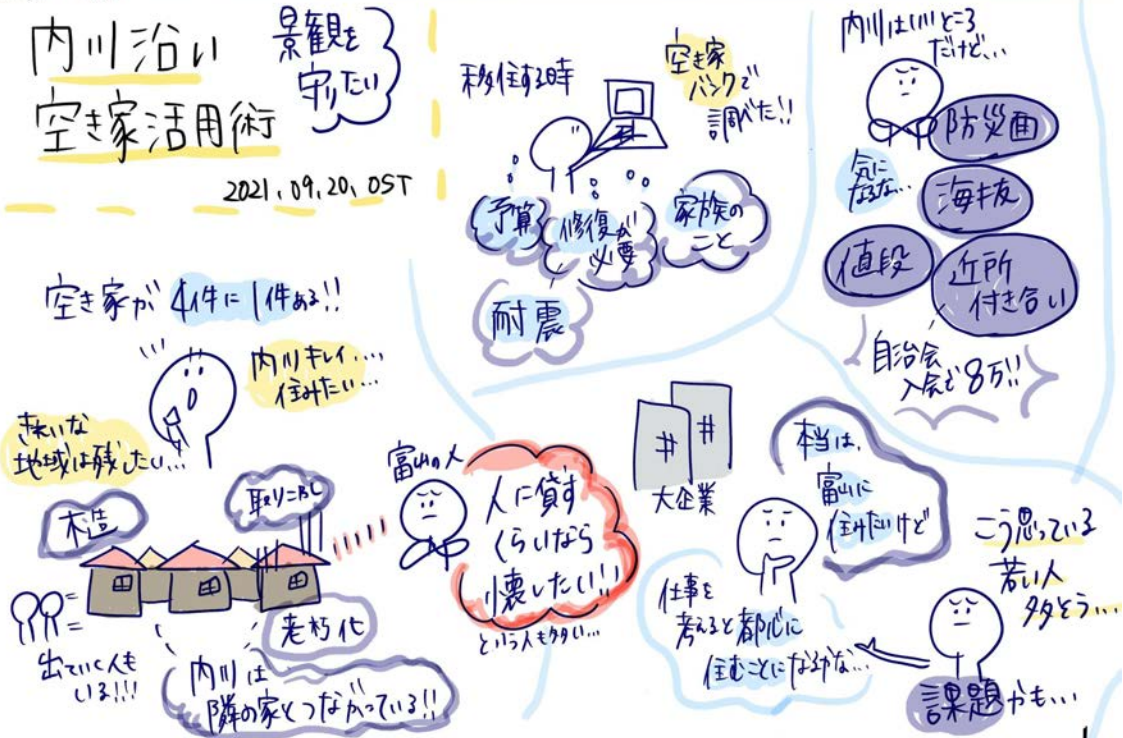 内川沿い
空き家活用術
景観を
守りたい
2021.09.20. OST
移住する時
空き家
バンクで
調べた!!
予算
修復が
必要
家族の
こと
耐震
内川はいいところ
だけど...
防災面
気に
なるな...
海抜
値段
近所
付き合い
自治会
入会で8万!!
空き家が 4件に1件ある!!
内川キレイ....
住みたい...
きれいな
地域は残したい...
木造
取りこわし
老朽化
出ていく人も
いる!!!
内川は
隣の家とつながっている!!
富山の人
人に貸す
くらいなら
壊したい!!
という人も多い...
大企業
本当は、
富山に
住みたいけど
仕事を
考えると都心に
住むことになるかな...
こう思っている
若い人
多そう...
課題かも...